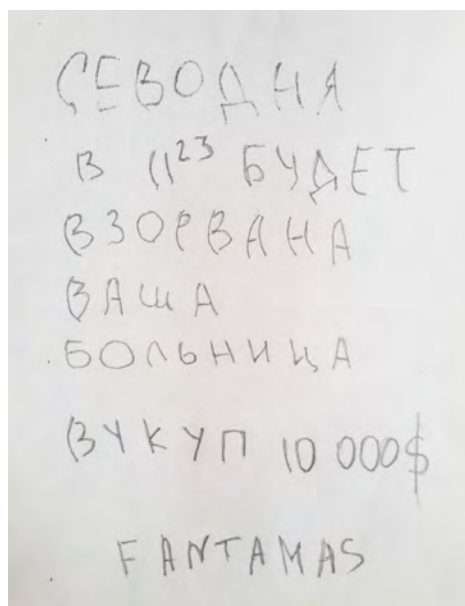 СЕВОДНЯ
В 11²³ БУДЕТ
ВЗОРВАНА
ВАША
БОЛЬНИЦА
ВУКУП 10 000$
FANTAMAS